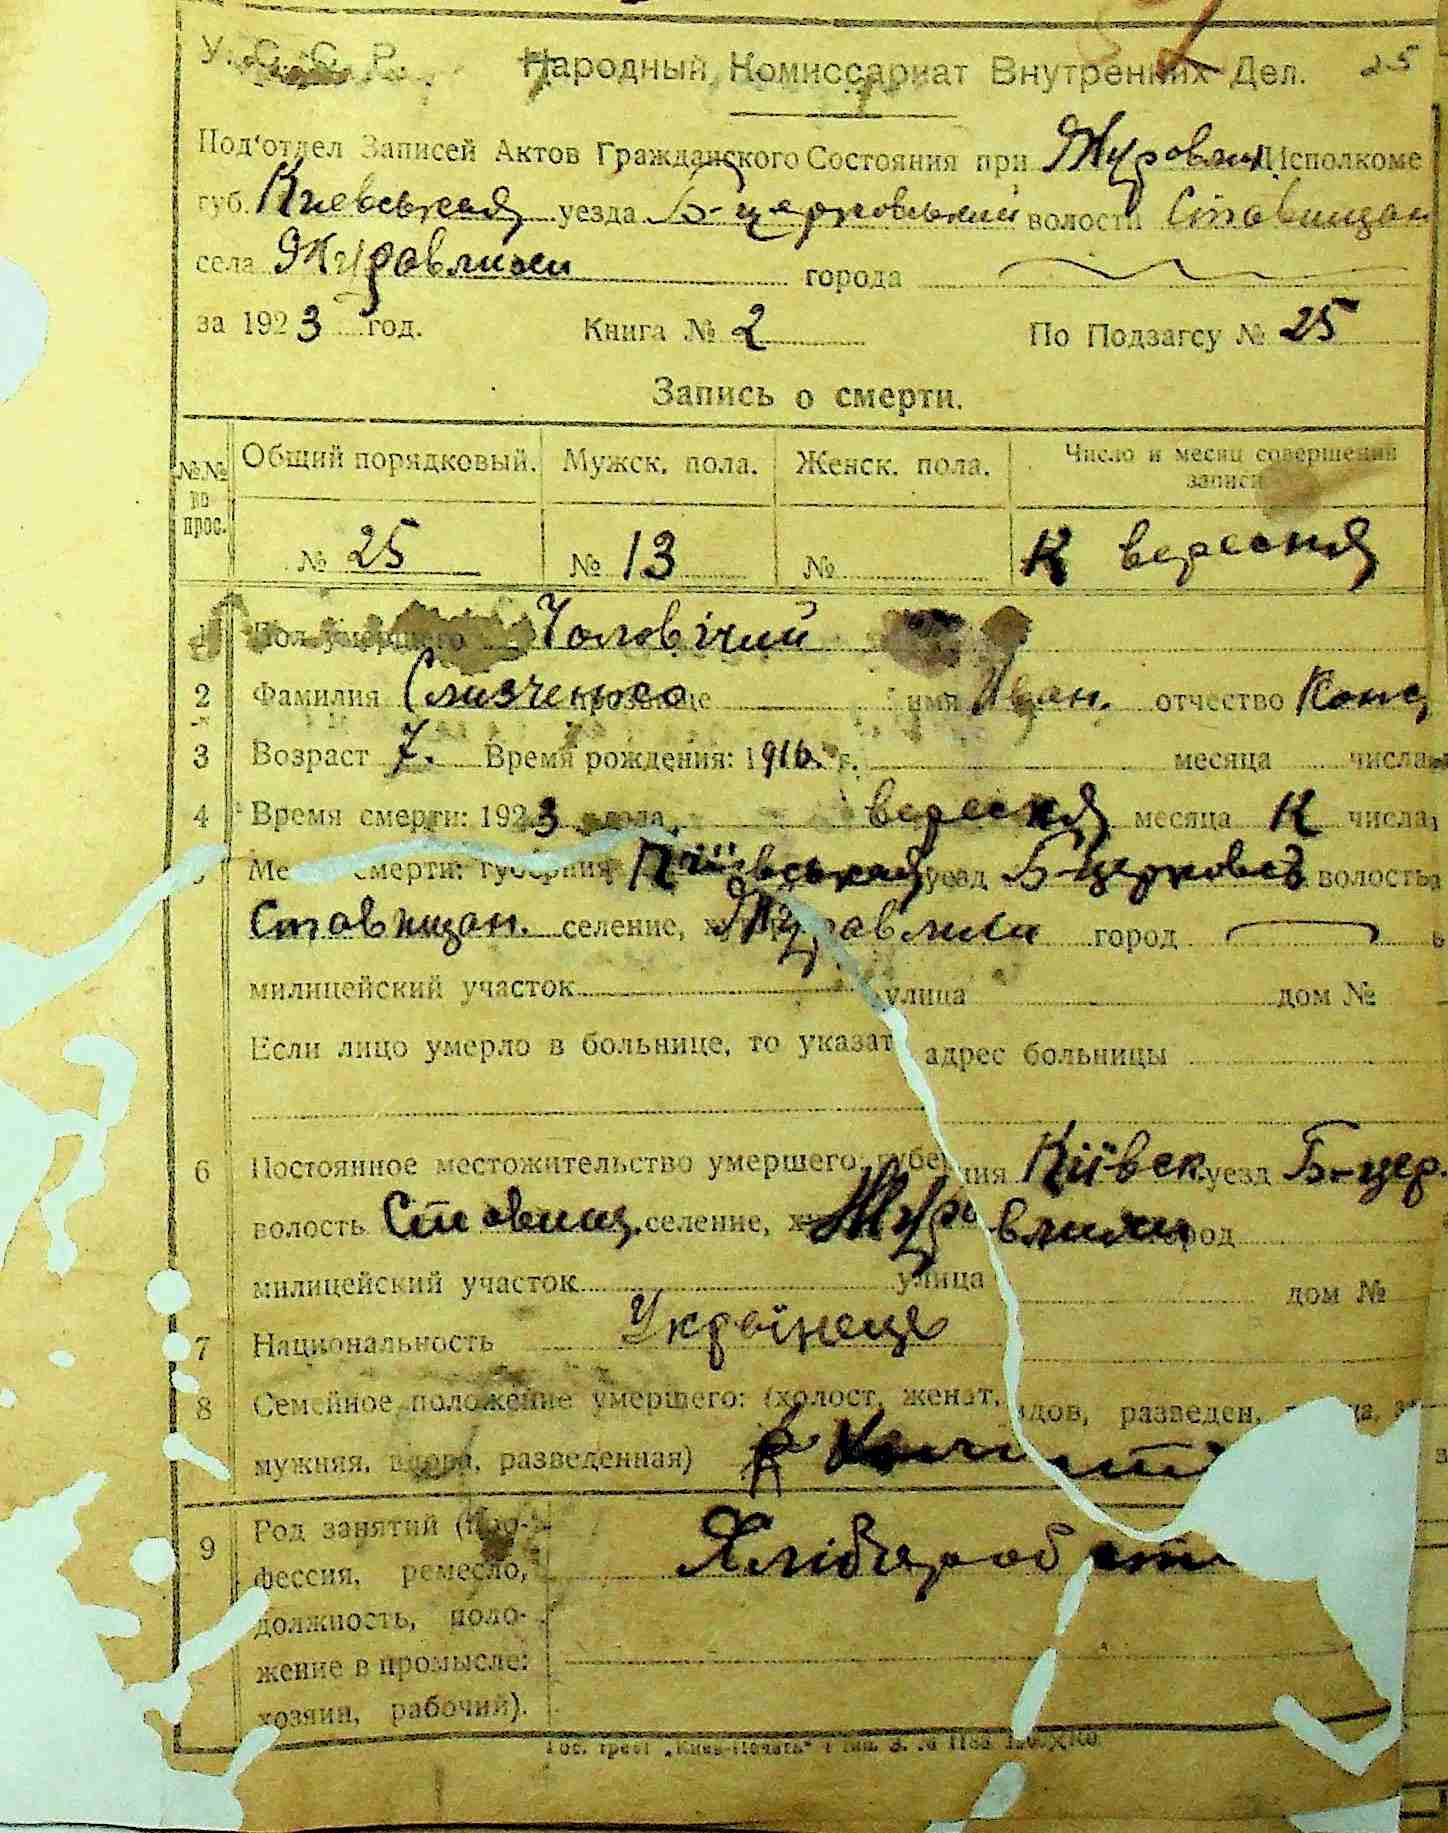 У. С. С. Р. Народный Комиссариат Внутренних Дел. 25
Под'отдел Записей Актов Гражданского Состояния при Журавлих. Исполкоме
губ. Киевськая уезда Б-церковський волости Ставищан
села Журавлихи города
за 1923 год. Книга № 2 По Подзагсу № 25
Запись о смерти.
№№ во прос. Общий порядковый. Мужск. пола. Женск. пола. Число и месяц совершения записи
№ 25 № 13 № вересня
1 Пол умершего Чоловічий
2 Фамилия Слизченко прозвище имя Иван. отчество Конс,
3 Возраст 7. Время рождения: 1916. г. месяца числа
4 Время смерти: 1923 года, вересня месяца числа,
5 Ме смерти: губерния Київськая уезд Б-церковсь волость
Ставищан. селение, Журавлихи город
милицейский участок улица дом №
Если лицо умерло в больнице, то указат адрес больницы
6 Постоянное местожительство умершего: губерния Київск. уезд Б-цер.
волость Ставищ. селение, Журавлихи город
милицейский участок улица дом №
7 Национальность Українець
8 Семейное положение умершего: (холост, женат, вдов, разведен,
мужняя, вдова, разведенная)
9 Род занятий (про-
фессия, ремесло, Хлібороб
должность, поло-
жение в промысле:
хозяин, рабочий).
Гос. трест „Киев-Печать"